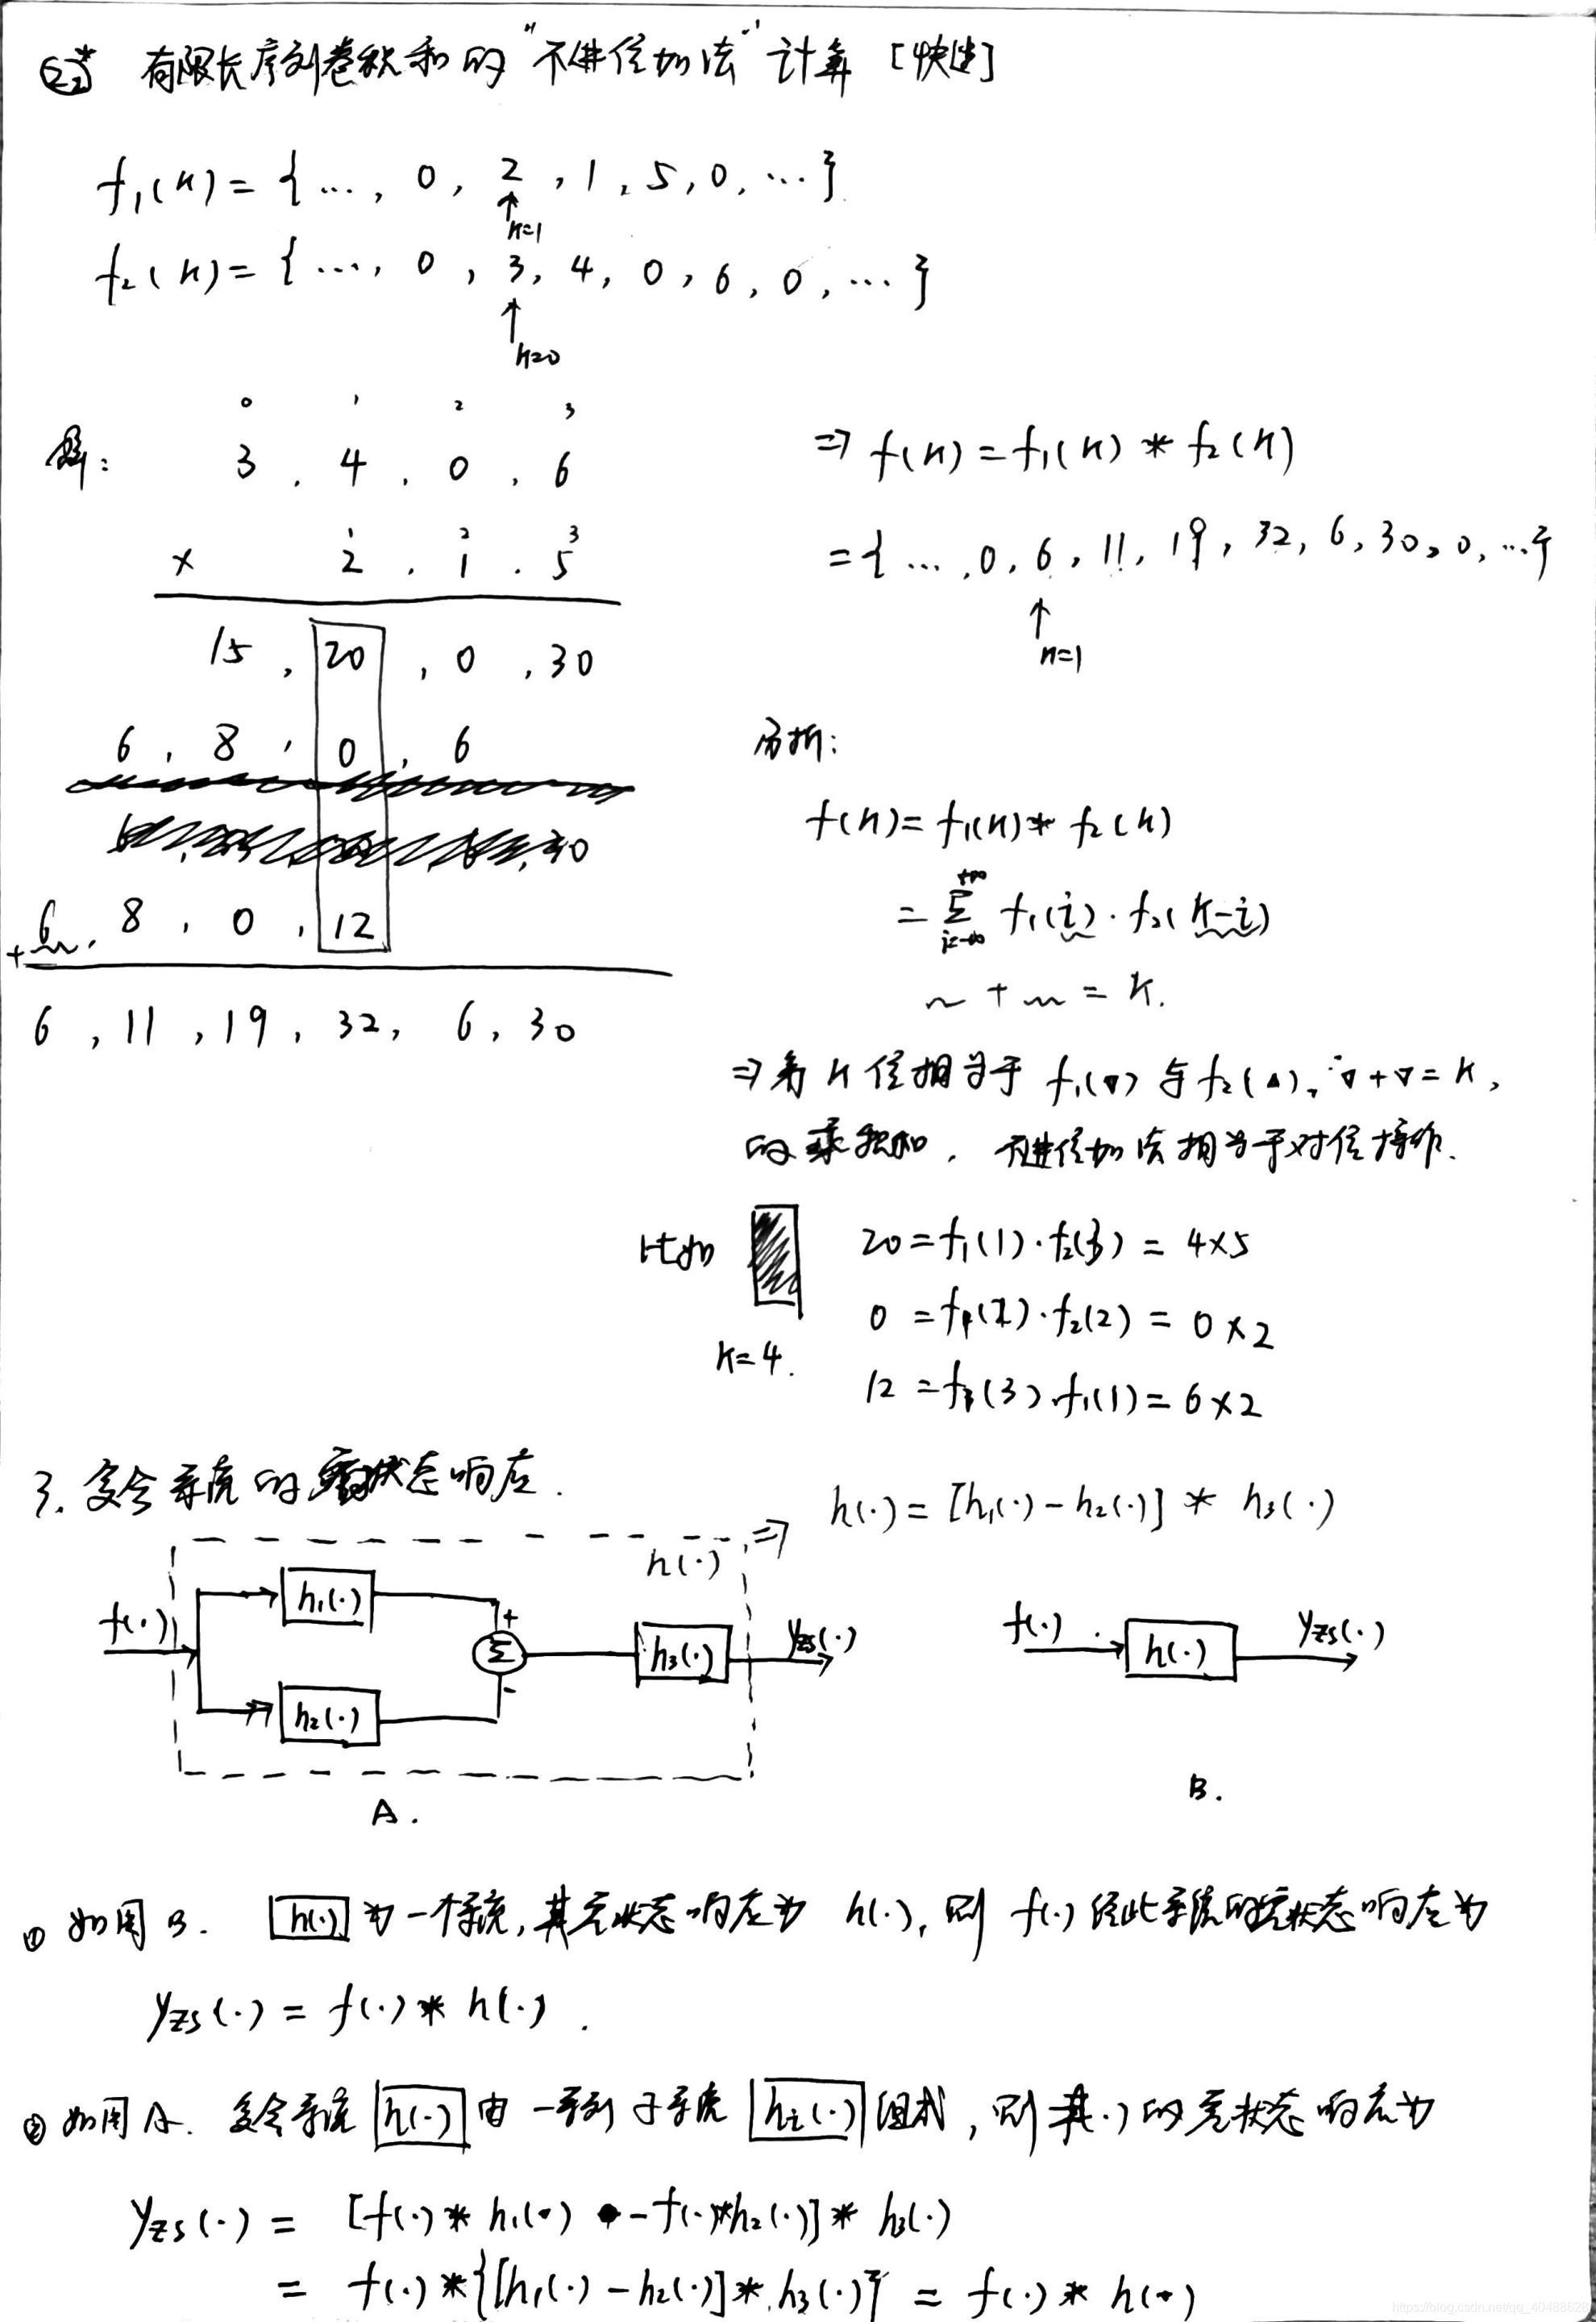 有限长序列卷积和的"不进位加法"计算 [快速]
f₁(n) = { ..., 0, 2, 1, 5, 0, ... }
↑
n=1
f₂(n) = { ..., 0, 3, 4, 0, 6, 0, ... }
↑
n=0
解:
0 1 2 3
3 . 4 . 0 . 6
1 2 3
× 2 . 1 . 5
15 , 20 , 0 , 30
6 , 8 , 0 , 6
30
+ 6 , 8 , 0 , 12
6 , 11 , 19 , 32 , 6 , 30
⇒ f(n) = f₁(n) * f₂(n)
= { ... , 0 , 6 , 11 , 19 , 32 , 6 , 30 , 0 , ... }
↑
n=1
分析:
f(n) = f₁(n) * f₂(n)
= Σ f₁(i) · f₂(k-i)
+∞
i=-∞
~ + ~ = k.
⇒ 第 k 位相当于 f₁(▽) 与 f₂(△), ▽+▽=k,
的乘积和, 不进位加法相当于对位操作.
比如
k=4.
20 = f₁(1) · f₂(3) = 4×5
0 = f₁(2) · f₂(2) = 0×2
12 = f (3) · f₁(1) = 6×2
3. 复合系统的零状态响应.
⇒ h(·) = [h₁(·) - h₂(·)] * h₃(·)
h(·)
f(·) h₁(·) + Σ - h₃(·) yzs(·)
h₂(·)
A.
f(·) h(·) yzs(·)
B.
① 如图B. h(·) 为一个系统, 其零状态响应为 h(·), 则 f(·) 经此系统的零状态响应为
yzs(·) = f(·) * h(·) .
② 如图A. 复合系统 h(·) 由一系列子系统 hi(·) 组成, 则其(·)的零状态响应为
yzs(·) = [f(·) * h₁(·) - f(·)*h₂(·)] * h₃(·)
= f(·) * {[h₁(·) - h₂(·)] * h₃(·)} = f(·) * h(·)